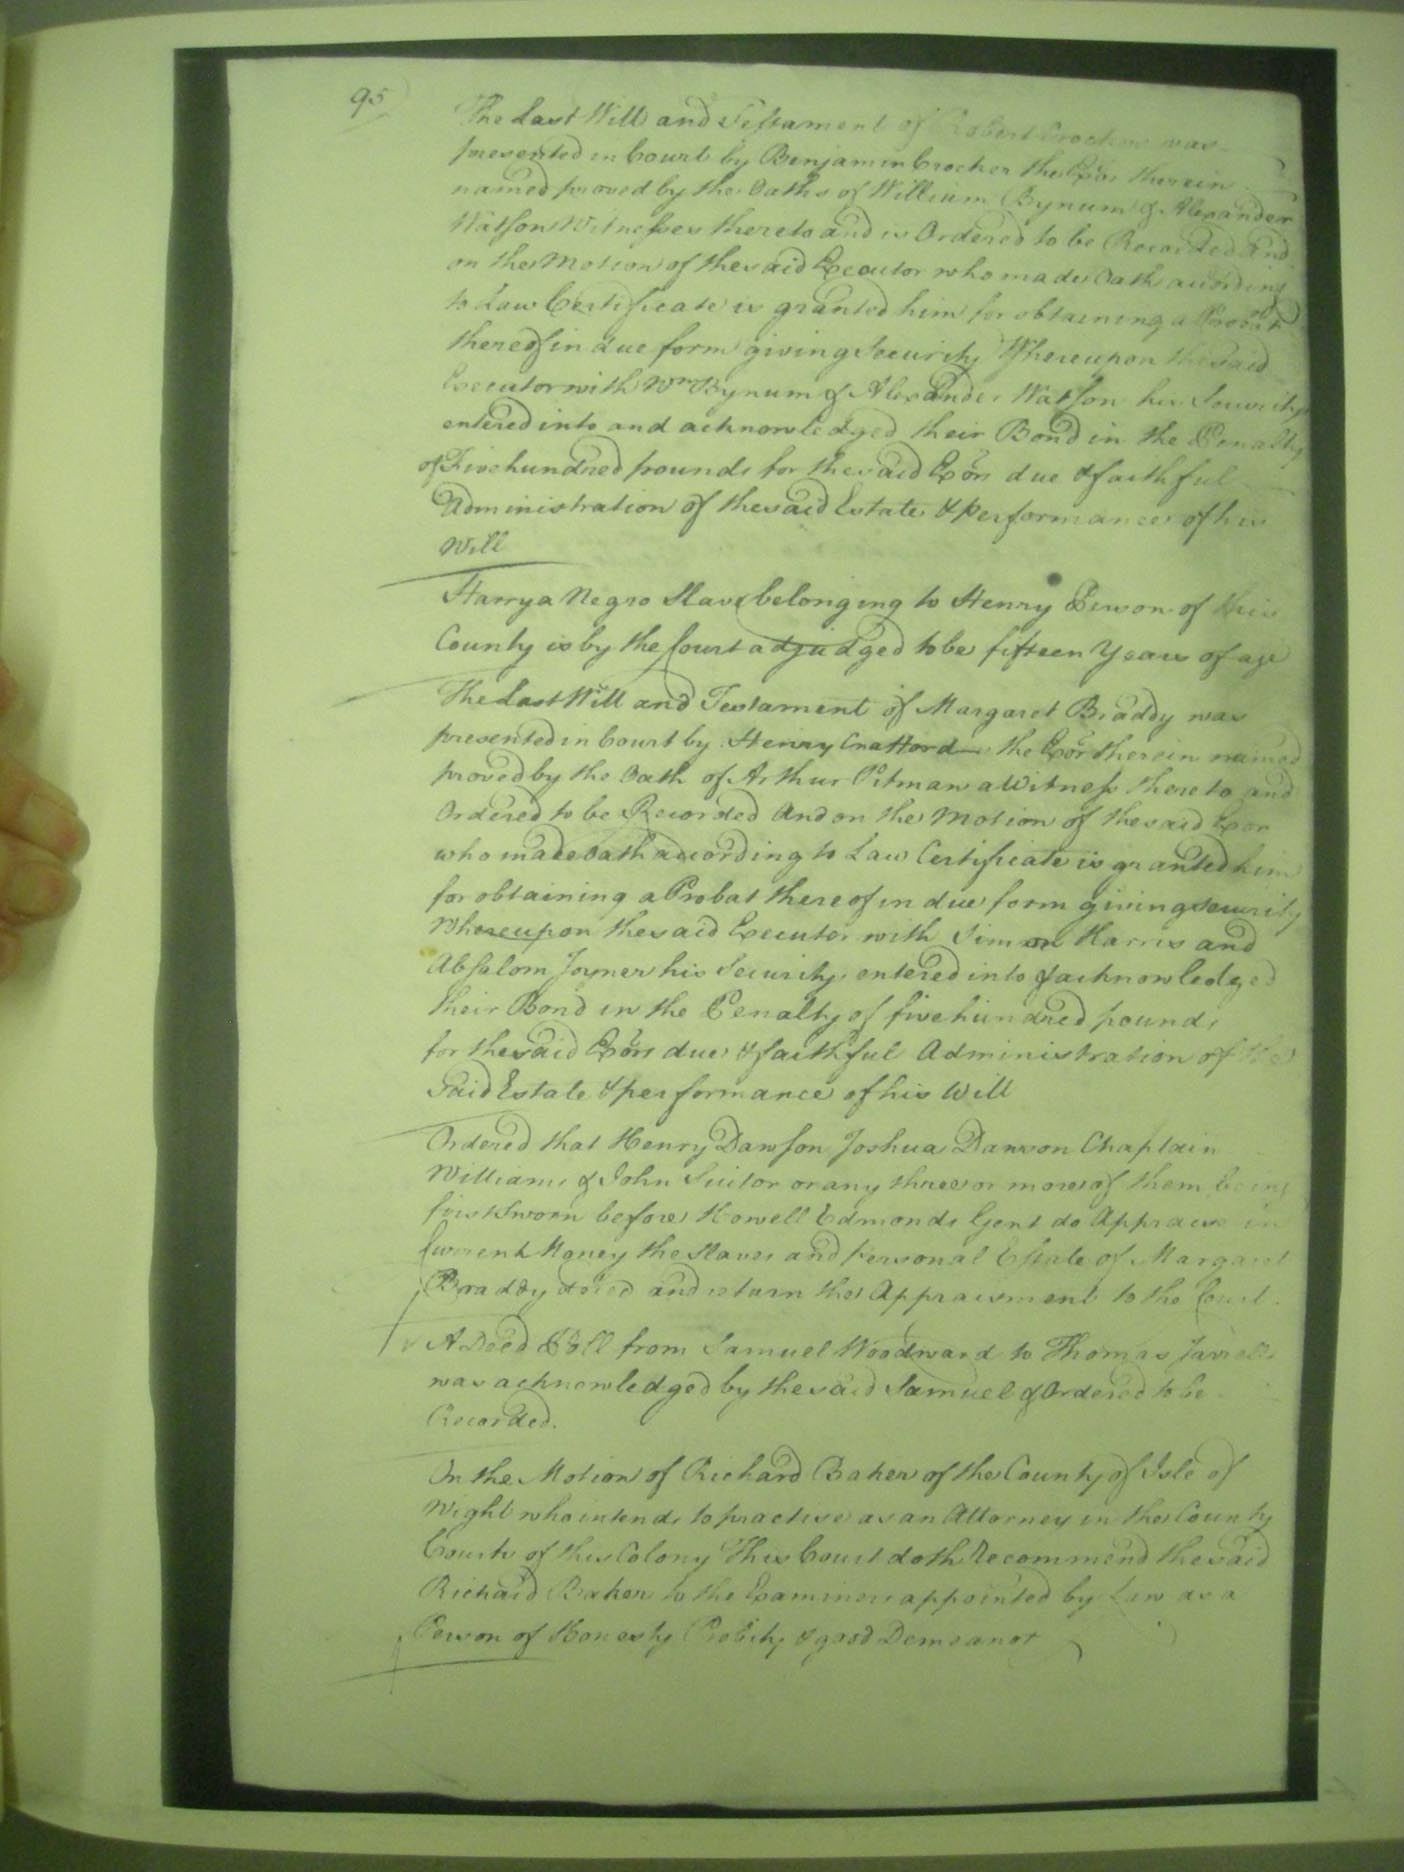 95
The Last Will and Testament of Robert Crocker was
presented in Court by Benjamin Crocker the Exor therein
named proved by the Oaths of William Bynum & Alexander
Watson Witnesses thereto and is Ordered to be Recorded and
on the Motion of the said Executor who made Oath according
to Law Certificate is granted him for obtaining a Probat
thereof in due form giving Security Whereupon the said
Executor with Wm Bynum & Alexander Watson his Security
entered into and acknowledged their Bond in the Penalty
of Five hundred pounds for the said Exors due & faithful
Administration of the said Estate & performance of his
Will
Harry a Negro Slave belonging to Henry Person of this
County is by the Court adjudged to be fifteen Years of age
The Last Will and Testament of Margaret Braddy was
presented in Court by Henry Crafford the Exor therein named
proved by the Oath of Arthur Pitman a Witness thereto and
Ordered to be Recorded And on the Motion of the said Exor
who made Oath according to Law Certificate is granted him
for obtaining a Probat thereof in due form giving Security
Whereupon the said Executor with Simon Harris and
Absalom Joyner his Security entered into & acknowledged
their Bond in the Penalty of five hundred pounds
for the said Exors due & faithful Administration of the
said Estate & performance of his Will
Ordered that Henry Dawson Joshua Dawson Chaplain
Williams & John Suitor or any three or more of them being
first Sworn before Howell Edmonds Gent do Appraise in
Current Money the Slaves and personal Estate of Margaret
Braddy deced and return the Appraisment to the Court
A Deed Poll from Samuel Woodward to Thomas Jarrell
was acknowledged by the said Samuel & Ordered to be
Recorded.
On the Motion of Richard Baker of the County of Isle of
Wight who intends to practise as an Attorney in the County
Courts of this Colony This Court doth Recommend the said
Richard Baker to the Examiners appointed by Law as a
Person of Honesty Probity & good Demeanor